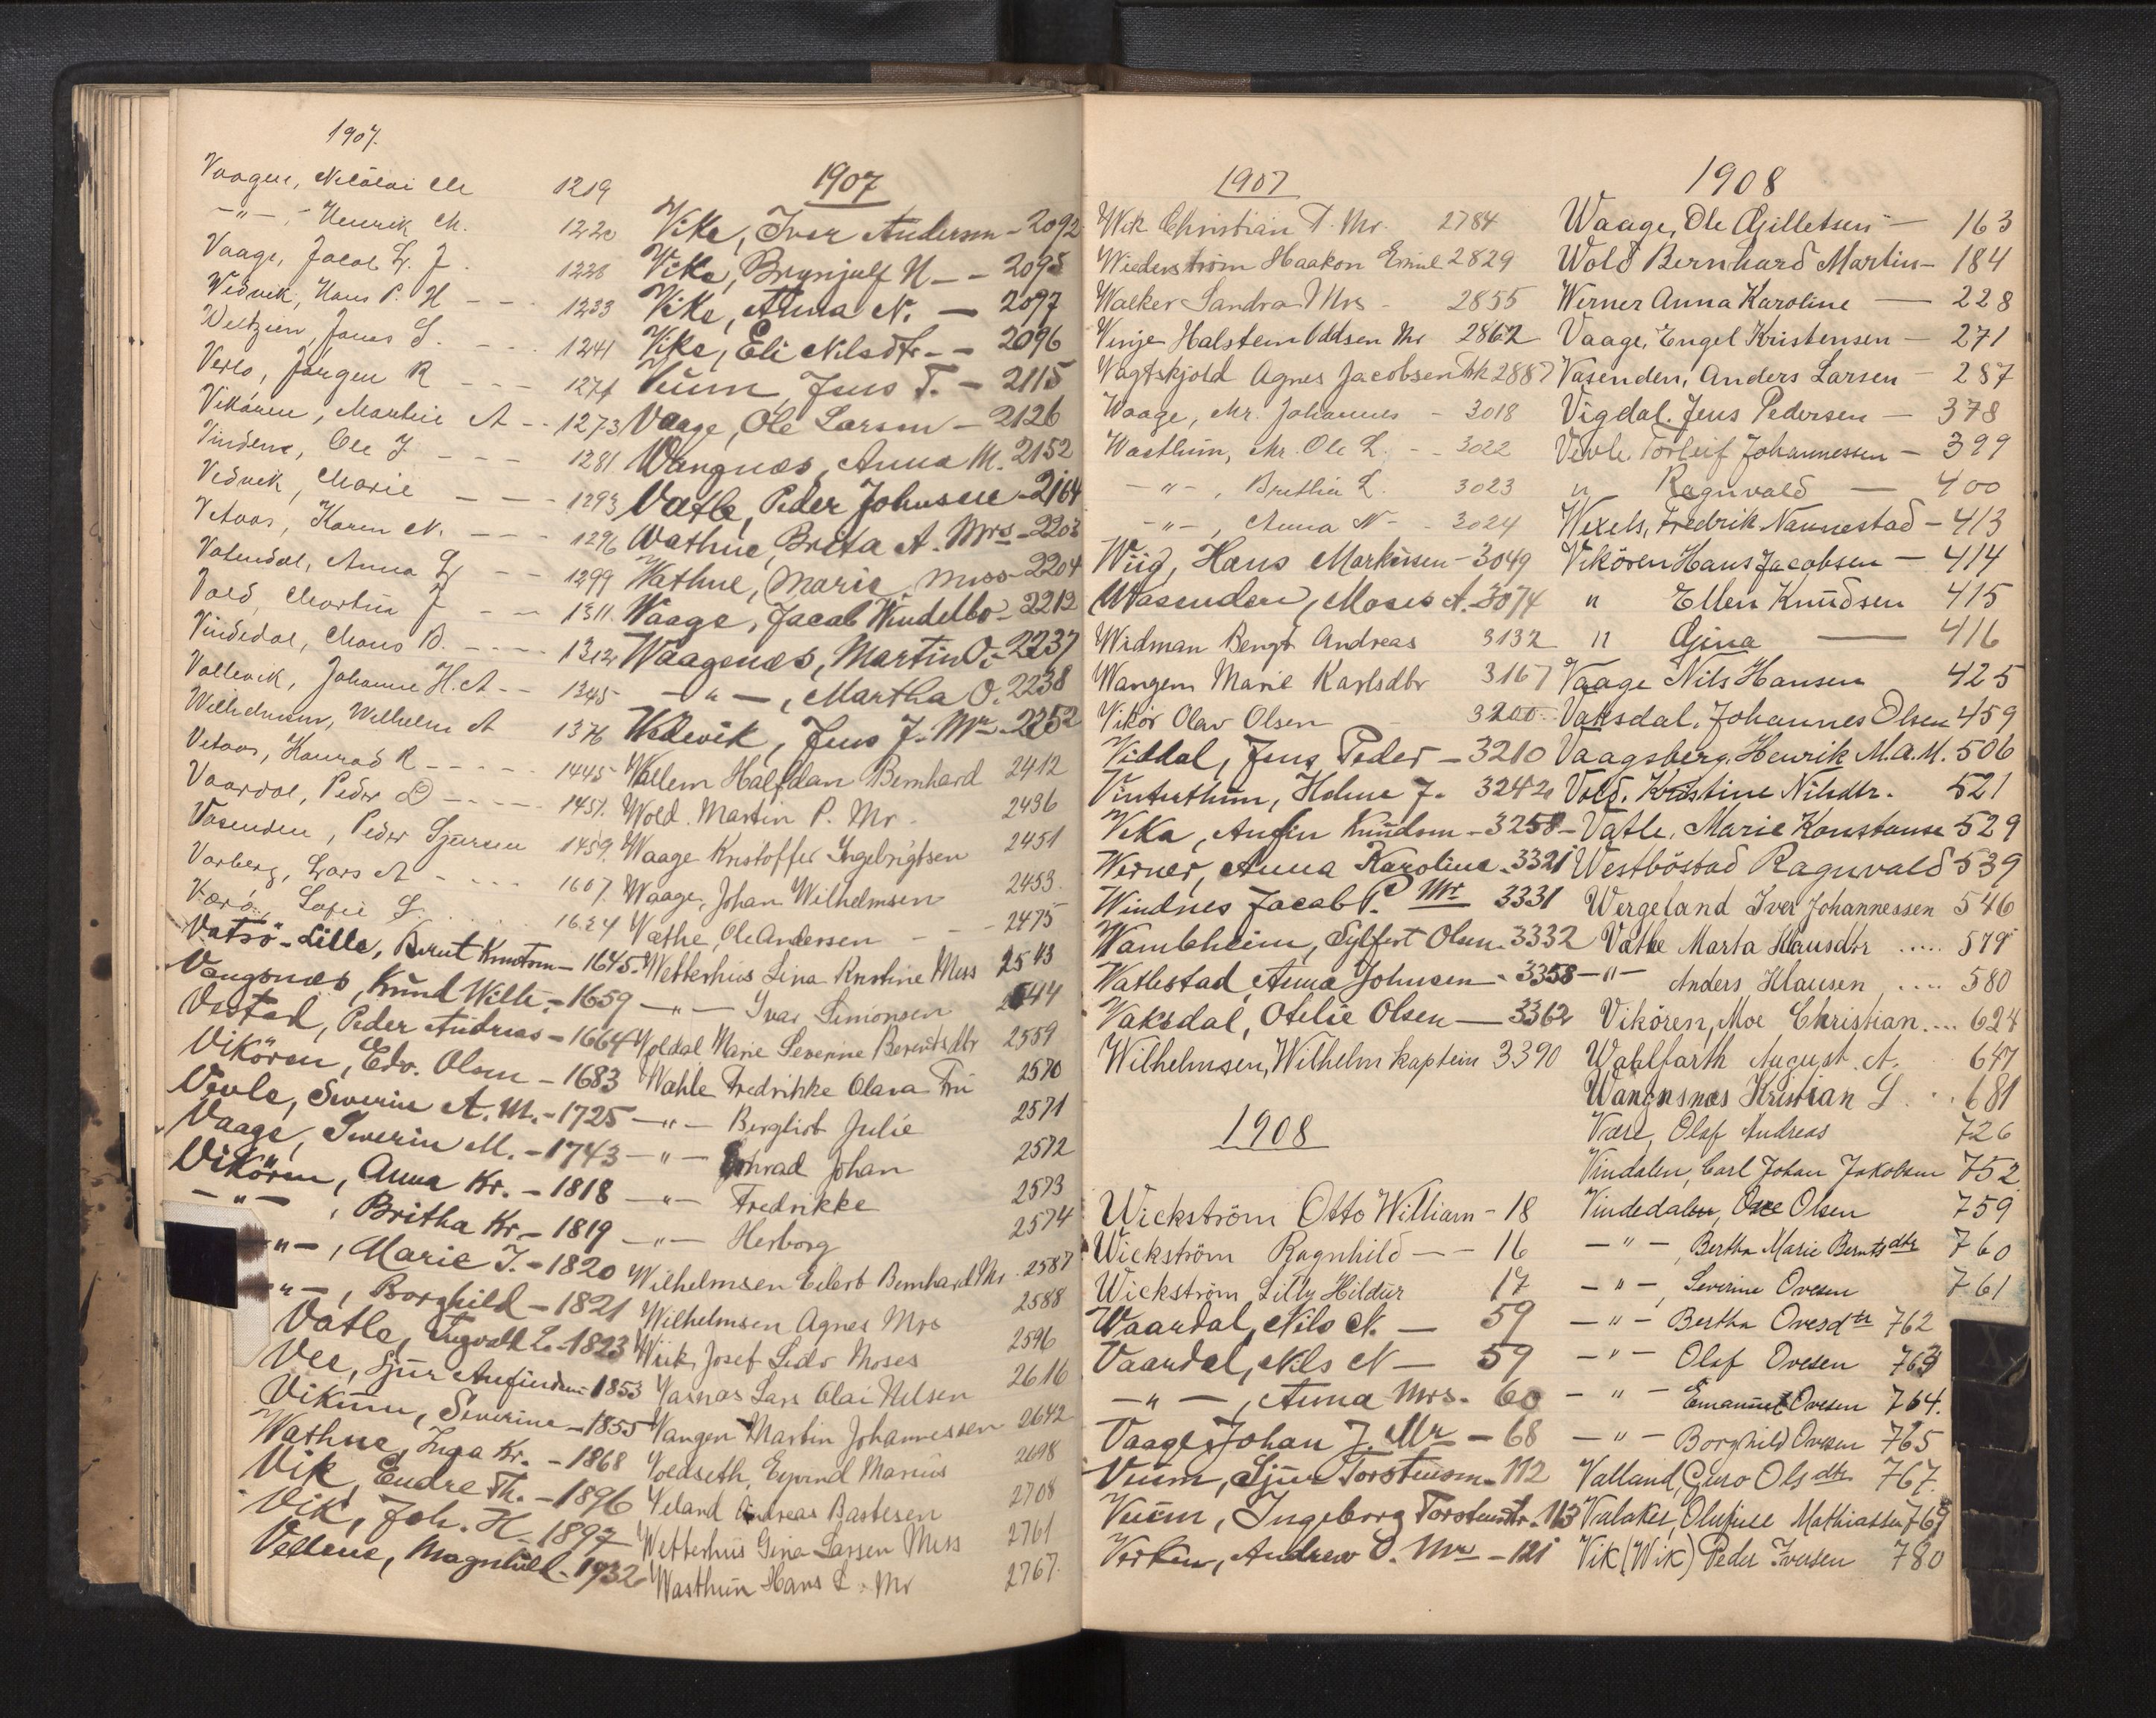 1907.
Vaagen, Nikolai M 1219
-"-, Henrik M. 1220
Vaage, Jacob L. J. 1226
Wedvik, Hans P. H - - 1233
Weltzien, Jonas S. - - 1241
Verlo, Jörgen R - - - 1271
Vikören, Martin A - - 1273
Vindene, Ole J - - - 1281
Vedvik, Marie - - - 1293
Vetaas, Karen N. - - - 1296
Valendal, Anna L - - 1299
Vold, Martin J - - 1311.
Vindedal, Mons B. - - - - 1312
Vallevik, Johanne H. A - - 1345
Wilhelmsen, Wilhelm A 1376
Vetaas, Konrad R - - - - 1445
Vaardal, Peder D - - - - 1451.
Vasenden, Peder Sjursen 1459.
Varberg, Lars A - - - - 1607.
Værö, Sofie S. 1624
Vatsö-Lille, Berut Knutsen - 1645.
Vangsnæs, Knud Wilh. - 1659
Vestad, Peder Andreas - 1664
Vikören, Edv. Olsen - 1683
Vevle, Severin A. M. - 1725
Vaage, Severin M. - 1743
Vikören, Anna Kr. - 1818
-"-, Britha Kr. - 1819
-"-, Marie J. - 1820
-"-, Borghild - 1821
Vatle, Ingvald L. - 1823
Vee, Sjur Anfindsen - 1853
Vikum, Severine - 1855
Wathne, Inga Kr. - 1868
Vik, Endre Th. - 1896
Vik, Joh. H. - 1897
Vellene, Magnhild - 1932
1907
Vike, Iver Andersen - 2092
Vike, Brynjulf N - - 2095
Vike, Anna N. - 2097
Vike, Eli Nilsdtr. - - 2096
Veum Jens T. - 2115
Vaage, Ole Larsen - 2126
Wangnæs, Anna M. 2152
Vatle, Peder Johnsen - 2164
Wathne, Brita A. Mrs - 2203
Wathne, Marie Miss - 2204
Waage, Jacob Windelbo - 2212
Waagenæs, Martin O. - 2237
-"-, Martha O. 2238
Vedevik, Jens J. Mr - 2252
Wallem Halfdan Bernhard 2412
Wold. Martin P. Mr. 2436
Waage Kristoffer Ingebrigtsen 2451
Waage, Johan Wilhelmsen 2453.
Vathe, Ole Andersen - - - 2475
Wetterhus Lina Kristine Miss 2543
-"- Ivar Simonsen 2544
Voldal Marie Severine Berentsdtr 2559
Wahle Fredrikke Olava Fru 2570
-"- Bergliot Julie 2571
-"- Conrad Johan 2572
-"- Fredrikke 2573
-"- Herborg 2574
Wilhelmsen Eilert Bernhard Mr. 2587
Wilhelmsen Agnes Mrs 2588
Wiik Josef Lido Moses 2596
Vasnæs Lars Olai Nilsen 2616
Vangen Martin Johannessen 2642
Voldseth, Eyvind Marius 2698
Veland Andreas Bastesen 2708
Wetterhus Gina Larsen Miss 2761
Wasthun Hans L. Mr 2767.
1907
Wik Christian T. Mr. 2784
Wiederström Haakon Emil 2829
Walker Sandra Mrs - 2855
Vinje Halstein Oddsen Mr 2862
Vagtskjold Agnes Jacobsen Frk 2887
Waage, Mr. Johannes - 3018
Wasthun, Mr. Ole L. - - 3022
-"-, Brithia L. 3023
-"-, Anna N - - 3024
Wiig, Hans Markusen - 3049
Wasenden, Moses A. - 3074
Widman Bengt Andreas 3132
Wangen Marie Karlsdtr 3167
Vikör Olav Olsen - 3200
Viddal, Jens Peder - 3210
Vinterthun, Helene J. 3242
Vika, Anfin Knudsen - 3258 -
Werner, Anna Karoline - 3321
Windnes Jacob P. Mr. 3331
Wambheim, Sylfest Olsen - 3332
Watlestad, Anna Johnsen - 3358
Vaksdal, Otelie Olsen - 3362
Wilhelmsen, Wilhelm kaptein 3390
1908
Wickström Otto William - 18
Wickström Ragnhild - - 16
Wickström, Lilly Hildur 17
Waardal, Nils N. - 59
Vaardal, Nils N - 59
-"-, Anna Mrs. 60
Vaage, Johan J. Mr - 68
Veum, Sjur Torstensen - 112
Veum, Ingeborg Torstensdtr. 113
Andrew O. Mr - 121
1908
Waage, Ole Gilletsen - 163
Wold Bernhard Martin - 184
Werner Anna Karoline - 228
Vaage, Engel Kristensen - 271
Vasenden, Anders Larsen - 287
Vigdal. Jens Pedersen - 378
Vevle Torleif Johannessen - 399
" Ragnvald - 400
Wexels, Fredrik Nannestad - 413
Vikören Hans Jacobsen - 414
" Ellen Knudsen 415
" Gina - 416
Vaage Nils Hansen 425
Vaksdal, Johannes Olsen 459
Vaagsberg, Henrik M. A. M. 506
Vold, Kristine Nilsdtr. 521
Vatle, Marie Konstanse 529
Westböstad Ragnvald 539
Wergeland Iver Johannessen 546
Vathe Marta Klausdtr ..... 579
-"- Anders Klausen .... 580
Vikören, Moe Christian.... 624
Wahlfarth August A. 647
Wangnsnæs Kristian L .. 681
Være, Olaf Andreas 726
Vindalen, Carl Johan Jakobsen 752
Vindedalen, Ove Olsen 759
-"-, Bertha Marie Berntsdtr 760
-"-, Severine Ovesen 761
-"- Bertha Ovesdtr 762
-"- Olaf Ovesen 763
-"- Emanuel Ovesen 764.
-"- Borghild Ovesen 765
Valland, Guro Olsdtr 767.
Valaker, Olufine Mathiassen 769
Vik (Wik) Peder Iversen 780